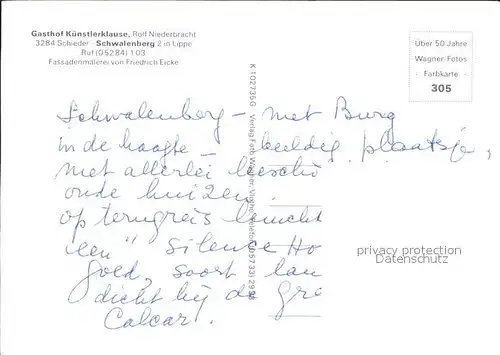 Gasthof Künstlerklause, Rolf Niederbracht
3284 Schieder - Schwalenberg 2 in Lippe
Ruf (05284) 103
Fassadenmalerei von Friedrich Eicke
Über 50 Jahre
Wagner-Fotos
Farbkarte
305
K 102735G Verlag Foto Wagner, Vlotho
Schwalenberg - met Burg
in de hoogte - beeldig plaatsje,
met allerlei
oude huizen.
op terugreis
een "Silence Ho
goed, soort lan
dicht bij de gre
Calcar!.
privacy protection
Datenschutz